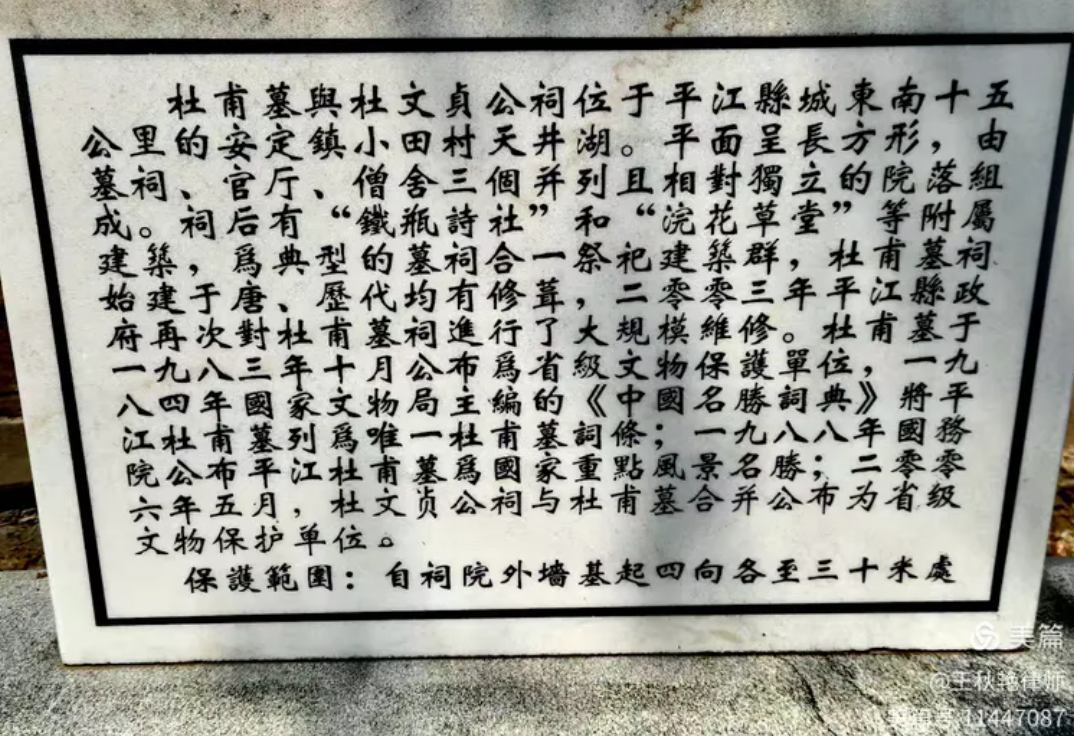 杜甫墓與杜文貞公祠位于平江縣城東南十五
公里的安定鎮小田村天井湖。平面呈長方形，由
墓祠、官厅、僧舍三個并列且相對獨立的院落組
成。祠后有“鐵瓶詩社”和“浣花草堂”等附屬
建築，爲典型的墓祠合一祭祀建築群，杜甫墓祠
始建于唐、歷代均有修葺，二零零三年平江縣政
府再次對杜甫墓祠進行了大規模維修。杜甫墓于
一九八三年十月公布爲省級文物保護單位，一九
八四年國家文物局主編的《中國名勝詞典》將平
江杜甫墓列爲唯一杜甫墓詞條；一九八八年國務
院公布平江杜甫墓爲國家重點風景名勝；二零零
六年五月，杜文贞公祠与杜甫墓合并公布为省级
文物保护单位。
保護範圍：自祠院外墻基起四向各至三十米處
美篇
@王秋艳律师
美篇号:11447087